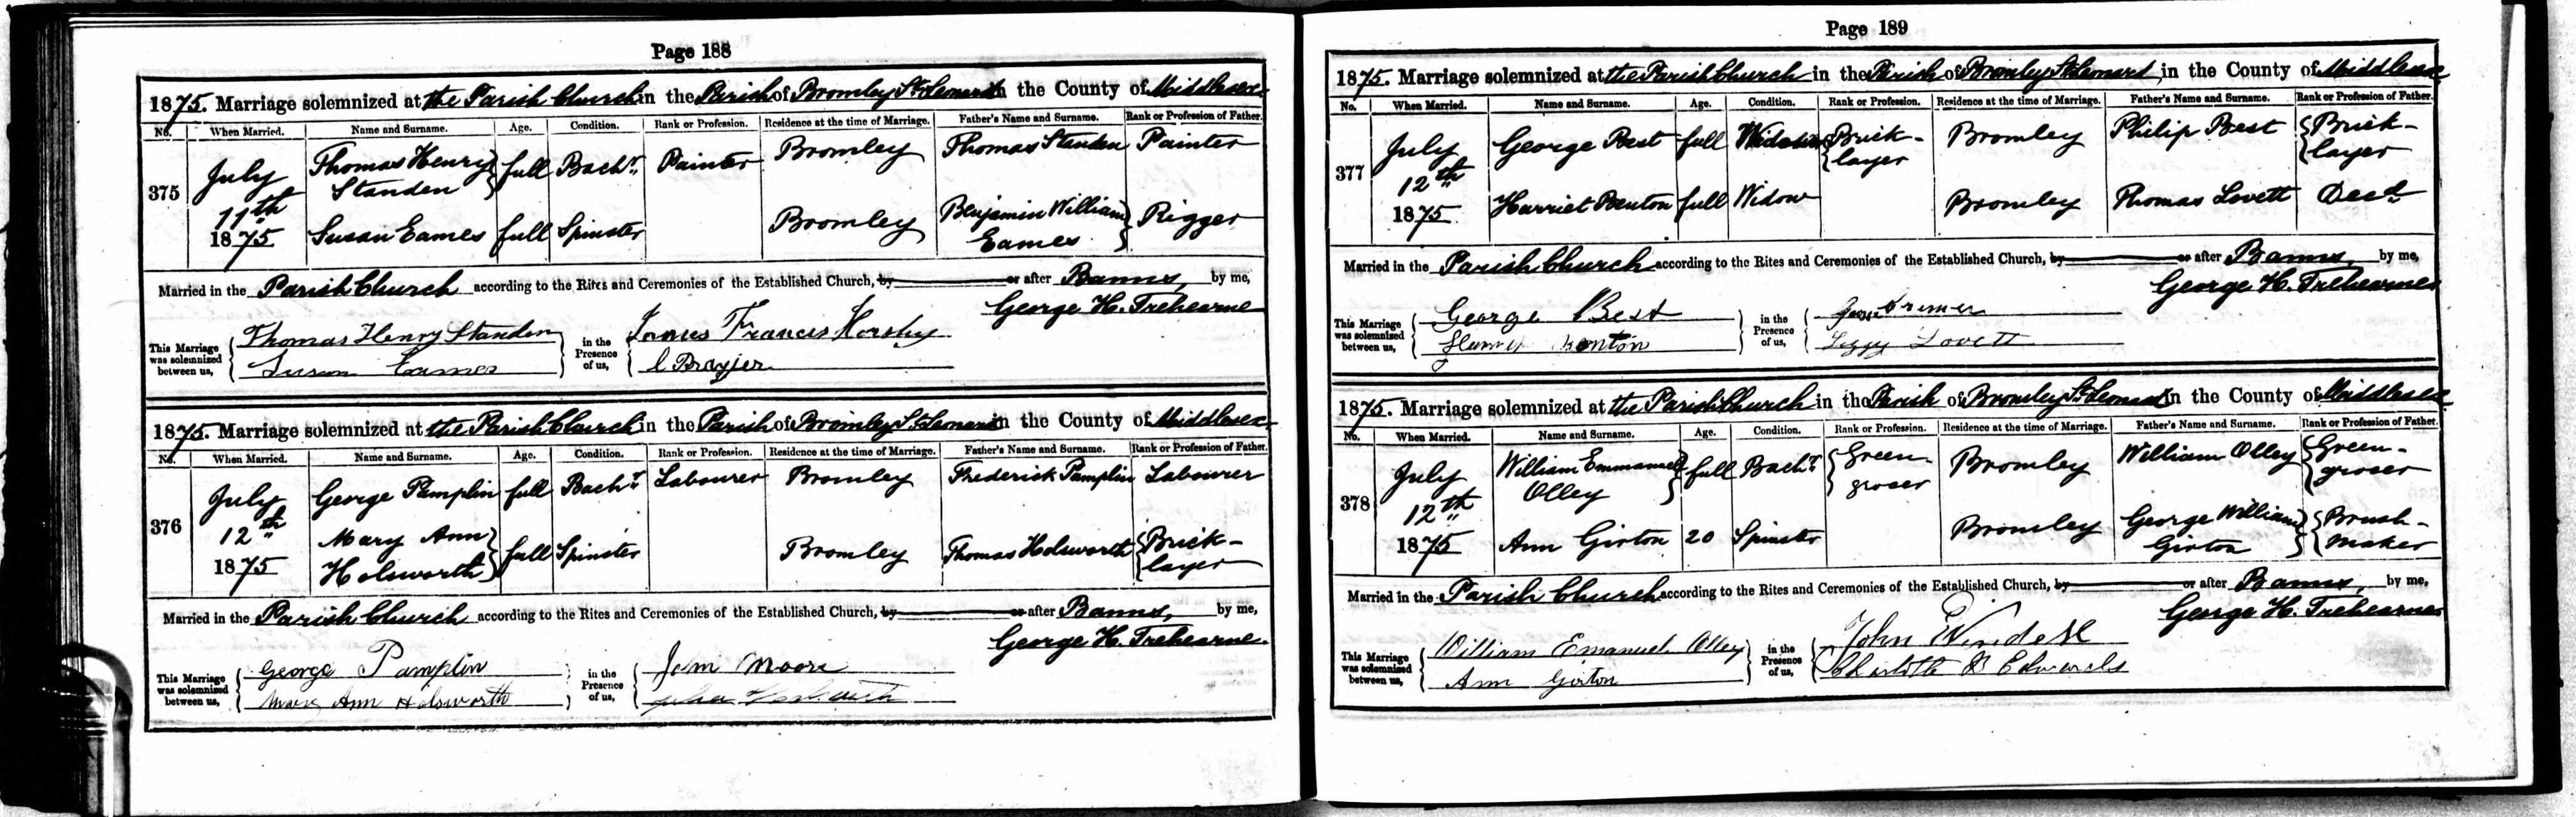 Page 188
1875. Marriage solemnized at the Parish Church in the Parish of Bromley St Leonard in the County of Middlesex
No. When Married. Name and Surname. Age. Condition. Rank or Profession. Residence at the time of Marriage. Father's Name and Surname. Rank or Profession of Father.
375 July 11th 1875 Thomas Henry Standen full Bachr. Painter Bromley Thomas Standen Painter
Susan Eames full Spinster Bromley Benjamin William Eames Rigger
Married in the Parish Church according to the Rites and Ceremonies of the Established Church, by or after Banns, by me,
George H. Trehearne
This Marriage was solemnized between us, Thomas Henry Standen in the Presence of us, James Francis
Susan Eames C Brazier
1875. Marriage solemnized at the Parish Church in the Parish of Bromley St Leonard in the County of Middlesex
No. When Married. Name and Surname. Age. Condition. Rank or Profession. Residence at the time of Marriage. Father's Name and Surname. Rank or Profession of Father.
376 July 12th 1875 George Pamplin full Bachr. Labourer Bromley Frederick Pamplin Labourer
Mary Ann Holsworth full Spinster Bromley Thomas Holsworth Brick-layer
Married in the Parish Church according to the Rites and Ceremonies of the Established Church, by or after Banns, by me,
George H. Trehearne
This Marriage was solemnized between us, George Pamplin in the Presence of us, Moore
Mary Ann Holsworth
Page 189
1875. Marriage solemnized at the Parish Church in the Parish of Bromley St Leonard in the County of Middlesex
No. When Married. Name and Surname. Age. Condition. Rank or Profession. Residence at the time of Marriage. Father's Name and Surname. Rank or Profession of Father.
377 July 12th 1875 George Best full Widower Brick-layer Bromley Philip Best Brick-layer
Harriet Benton full Widow Bromley Thomas Lovett Decd
Married in the Parish Church according to the Rites and Ceremonies of the Established Church, by or after Banns, by me,
George H. Trehearne
This Marriage was solemnized between us, George Best in the Presence of us,
Benton Lizzy Lovett
1875. Marriage solemnized at the Parish Church in the Parish of Bromley St Leonard in the County of Middlesex
No. When Married. Name and Surname. Age. Condition. Rank or Profession. Residence at the time of Marriage. Father's Name and Surname. Rank or Profession of Father.
378 July 12th 1875 William Emmanuel Olley full Bachr. Green-groser Bromley William Olley Green-groser
Ann Girton 20 Spinster Bromley George William Girton Brush-maker
Married in the Parish Church according to the Rites and Ceremonies of the Established Church, by or after Banns, by me,
George H. Trehearne
This Marriage was solemnized between us, William Emanuel Olley in the Presence of us, John
Ann Girton Charlotte B Edwards